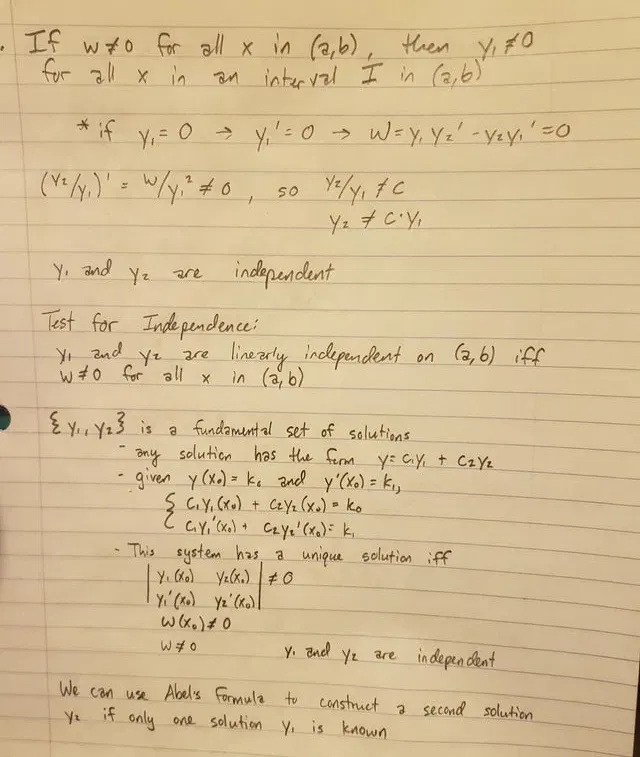 . If W≠0 for all x in (a,b), then y₁≠0
for all x in an interval I in (a,b)
* if y₁=0 → y₁'=0 → W=y₁y₂'-y₂y₁'=0
(y₂/y₁)' = W/y₁² ≠ 0, so y₂/y₁ ≠ C
y₂ ≠ C·y₁
y₁ and y₂ are independent
Test for Independence:
y₁ and y₂ are linearly independent on (a,b) iff
W≠0 for all x in (a,b)
{y₁, y₂} is a fundamental set of solutions
- any solution has the form y= c₁y₁ + c₂y₂
- given y(x₀)=k₀ and y'(x₀)=k₁,
{ c₁y₁(x₀) + c₂y₂(x₀)=k₀
c₁y₁'(x₀) + c₂y₂'(x₀)=k₁
- This system has a unique solution iff
| y₁(x₀) y₂(x₀) | ≠0
| y₁'(x₀) y₂'(x₀) |
W(x₀)≠0
W≠0 y₁ and y₂ are independent
We can use Abel's formula to construct a second solution
y₂ if only one solution y₁ is known